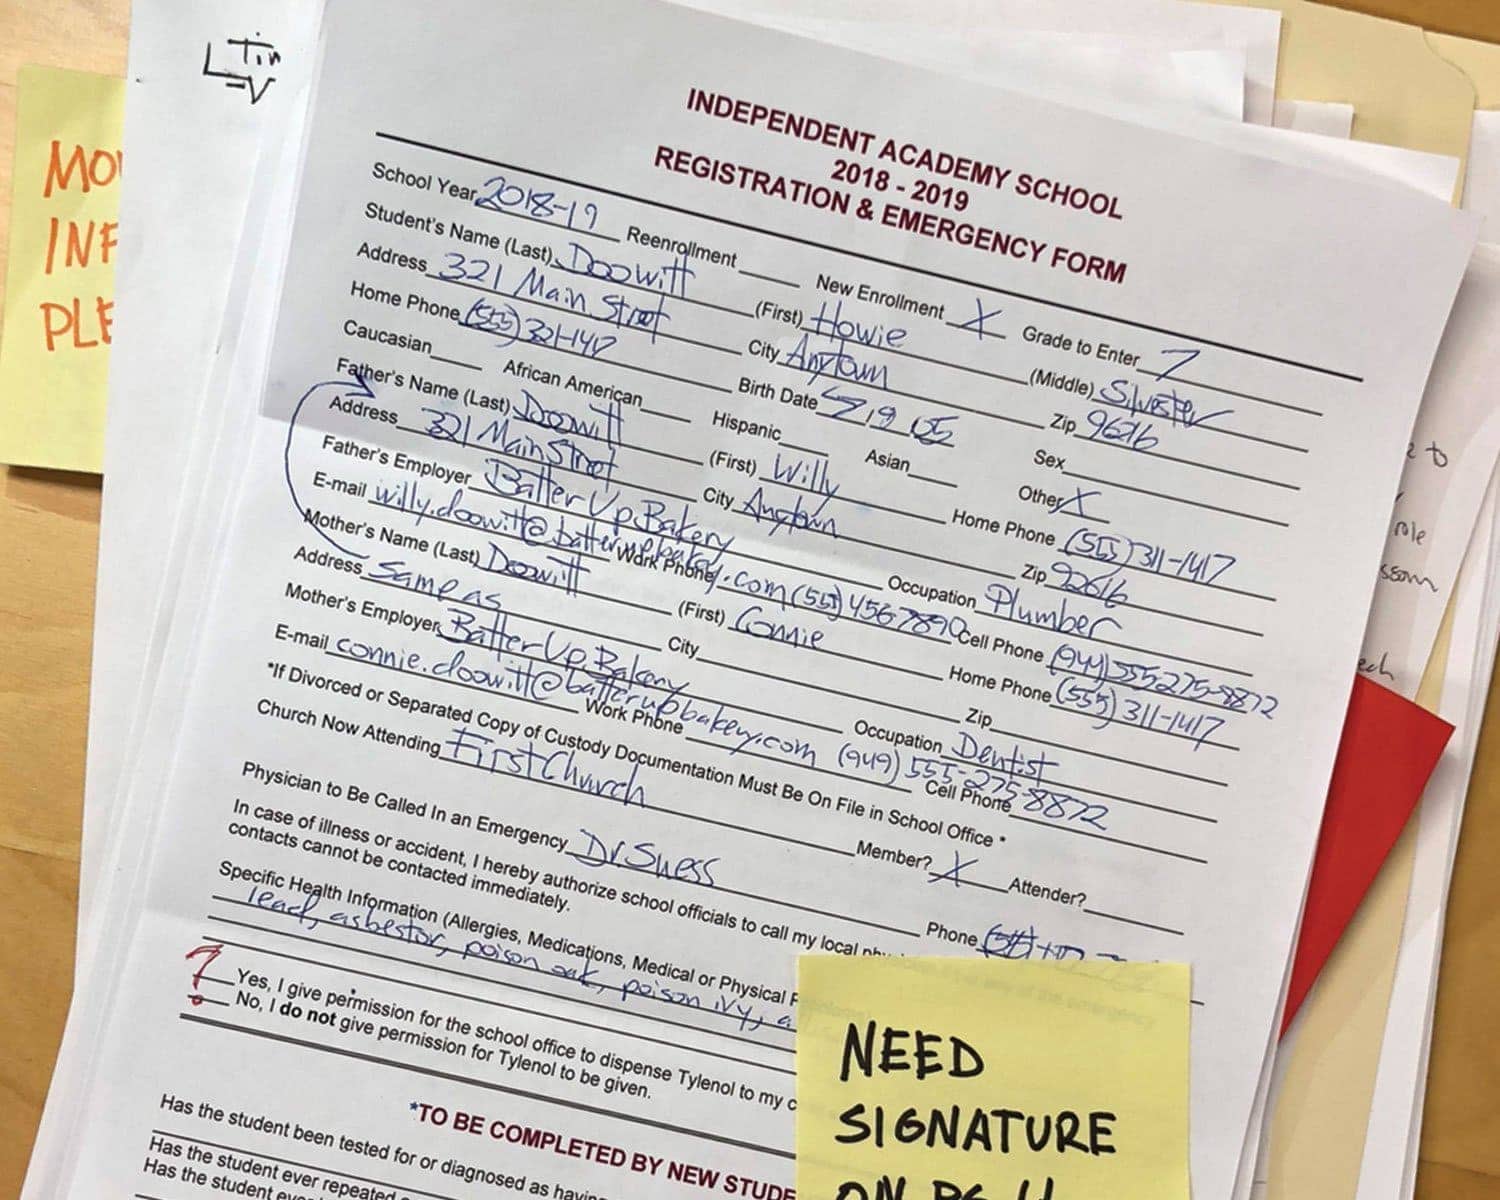 Tin
L=V
MO
INF
PLE
INDEPENDENT ACADEMY SCHOOL
2018 - 2019
REGISTRATION & EMERGENCY FORM
School Year 2018-19 Reenrollment New Enrollment X Grade to Enter 7
Student's Name (Last) Doowitt (First) Howie (Middle) Silvester
Address 321 Main Street City Anytown Zip 9676
Home Phone (555) 321-1417 Birth Date 5 19 05 Sex
Caucasian African American Hispanic Asian Other X
Father's Name (Last) Doowitt (First) Willy Home Phone (555) 311-1417
Address 321 Main Street City Anytown Zip 92616
Father's Employer Batter Up Bakery Occupation Plumber
E-mail willy.doowitt@batterupbakery.com Work Phone (555) 456-7890 Cell Phone (944) 555-275-8872
Mother's Name (Last) Doowitt (First) Connie Home Phone (555) 311-1417
Address Same as City Zip
Mother's Employer Batter Up Bakery Occupation Dentist
E-mail connie.doowitt@batterupbakery.com Work Phone (949) 555-275-8872 Cell Phone
*If Divorced or Separated Copy of Custody Documentation Must Be On File in School Office *
Church Now Attending First Church Member? X Attender?
Physician to Be Called In an Emergency Dr Suess Phone
In case of illness or accident, I hereby authorize school officials to call my local
contacts cannot be contacted immediately.
Specific Health Information (Allergies, Medications, Medical or Physical P
lead, asbestor, poison oak, poison ivy, a
? Yes, I give permission for the school office to dispense Tylenol to my c
No, I do not give permission for Tylenol to be given.
*TO BE COMPLETED BY NEW STUDE
Has the student been tested for or diagnosed as having
Has the student ever repeated
Has the student ever
NEED
SIGNATURE
ON PG 4
to
role
ech